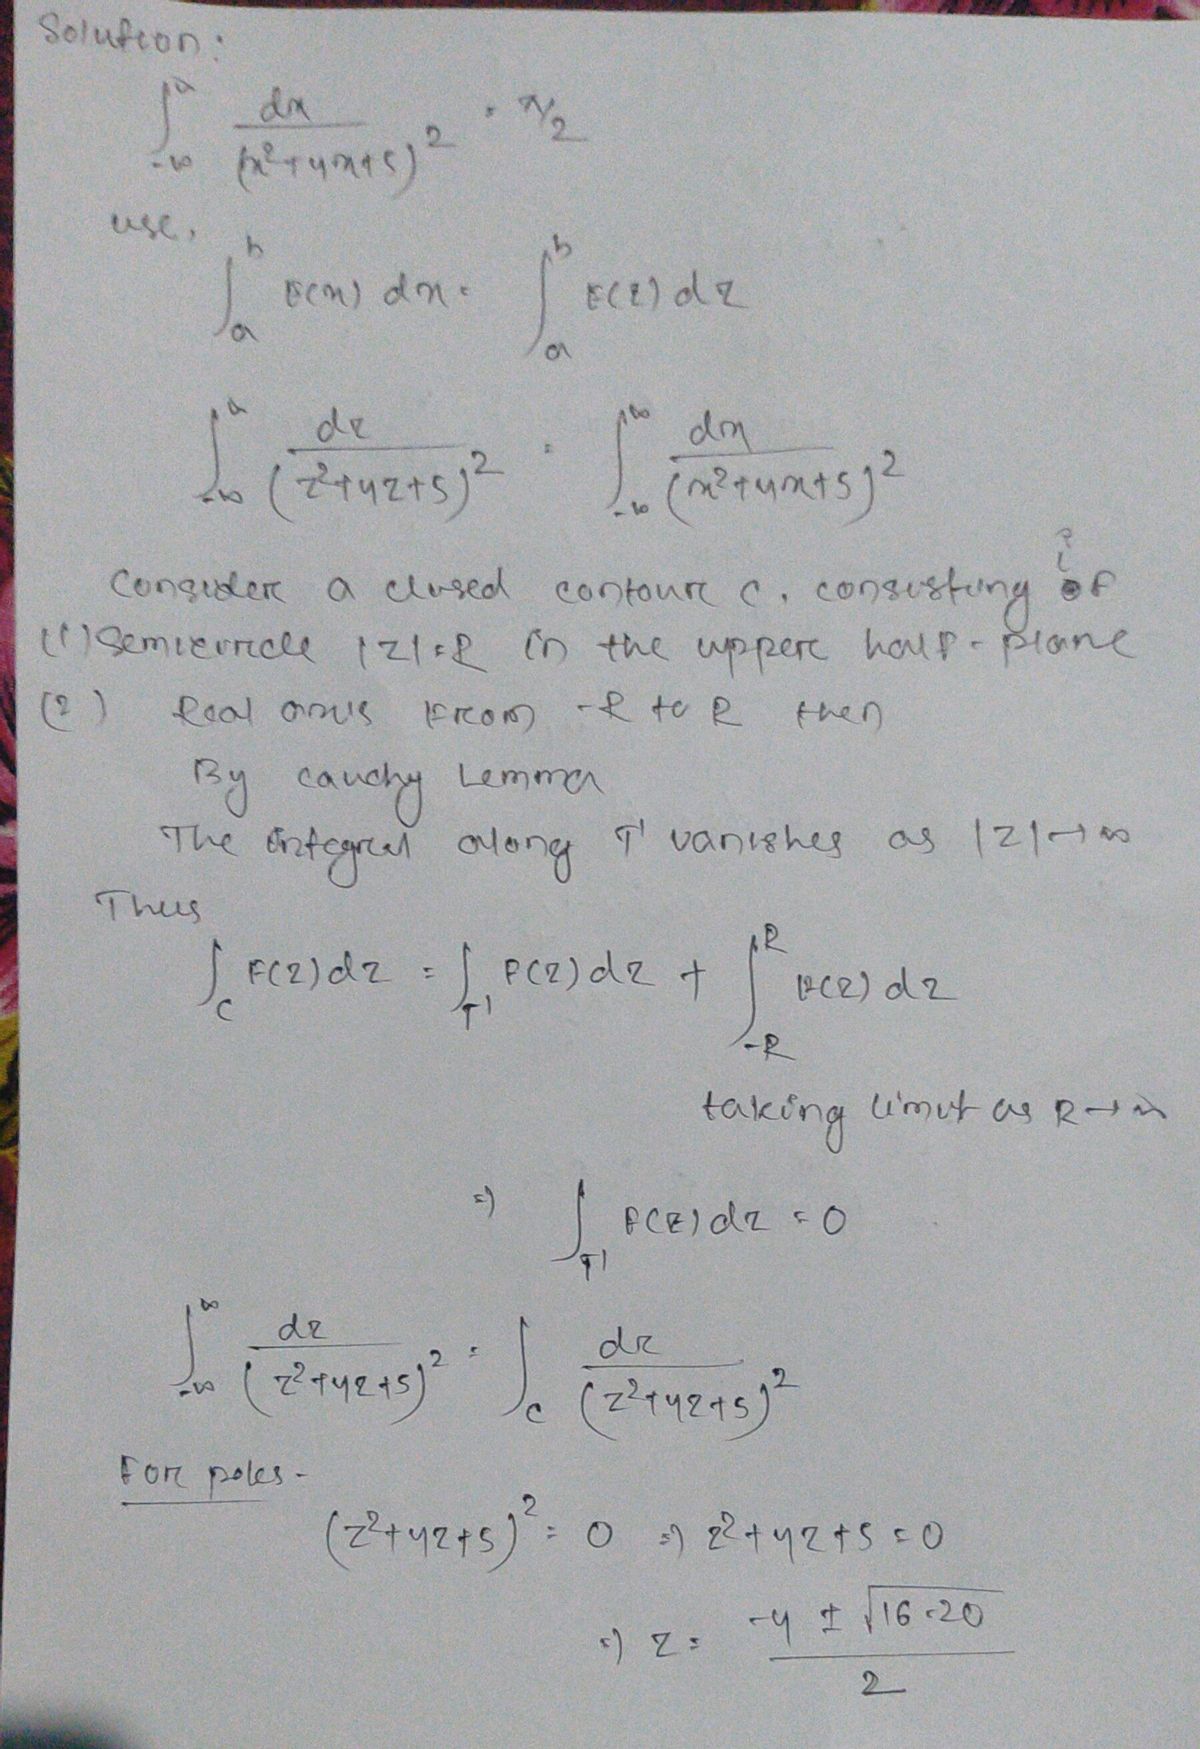 Solution:
∫_{-∞}^{∞} dx / (x²+4x+5)² = π/2
use,
∫_a^b F(x) dx = ∫_a^b F(z) dz
∫_{-∞}^{∞} dz / (z²+4z+5)² = ∫_{-∞}^{∞} dx / (x²+4x+5)²
Consider a closed contour C, consisting of
(1) Semicircle |z|=R in the upper half-plane
(2) Real axis from -R to R then
By cauchy Lemma
The integral along T' vanishes as |z|→∞
Thus
∫_C F(z) dz = ∫_{T'} F(z) dz + ∫_{-R}^{R} F(z) dz
taking limit as R→∞
⇒ ∫_{T'} F(z) dz = 0
∫_{-∞}^{∞} dz / (z²+4z+5)² = ∫_C dz / (z²+4z+5)²
For poles-
(z²+4z+5)² = 0 ⇒ z²+4z+5 = 0
⇒ z = (-4 ± √(16-20)) / 2